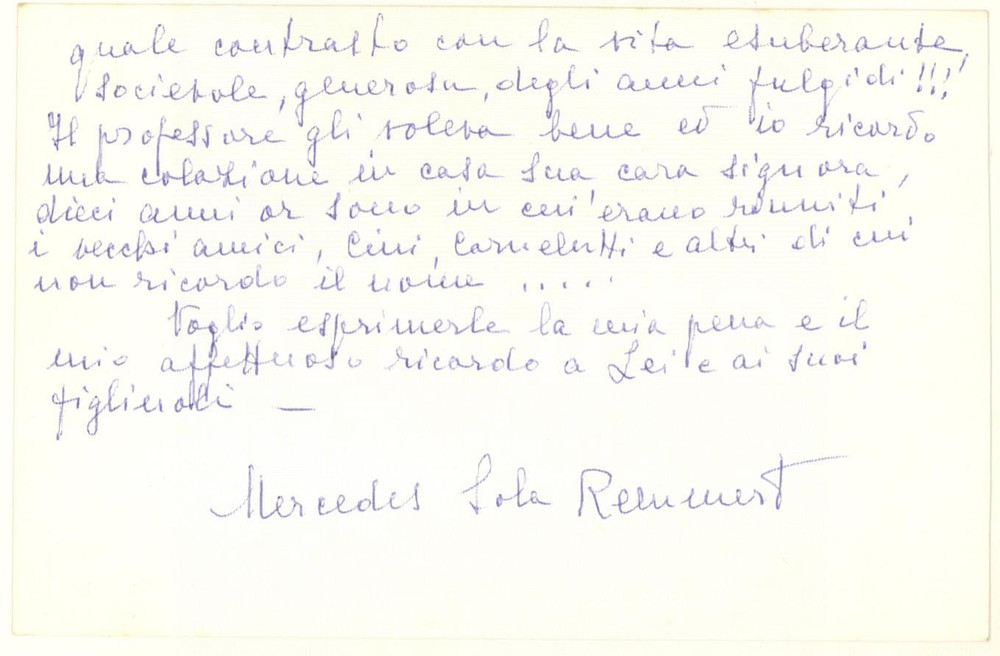 quale contrasto con la vita esuberante,
societole, generosa, degli anni fulgidi!!!
Il professore gli voleva bene ed io ricordo
una colazione in casa sua cara signora,
dieci anni or sono in cui erano riuniti
i vecchi amici, Cini, Carnelutti e altri di cui
non ricordo il nome .....
Voglio esprimerle la mia pena e il
mio affettuoso ricordo a Lei e ai suoi
figliuoli —
Mercedes Sola Remmert